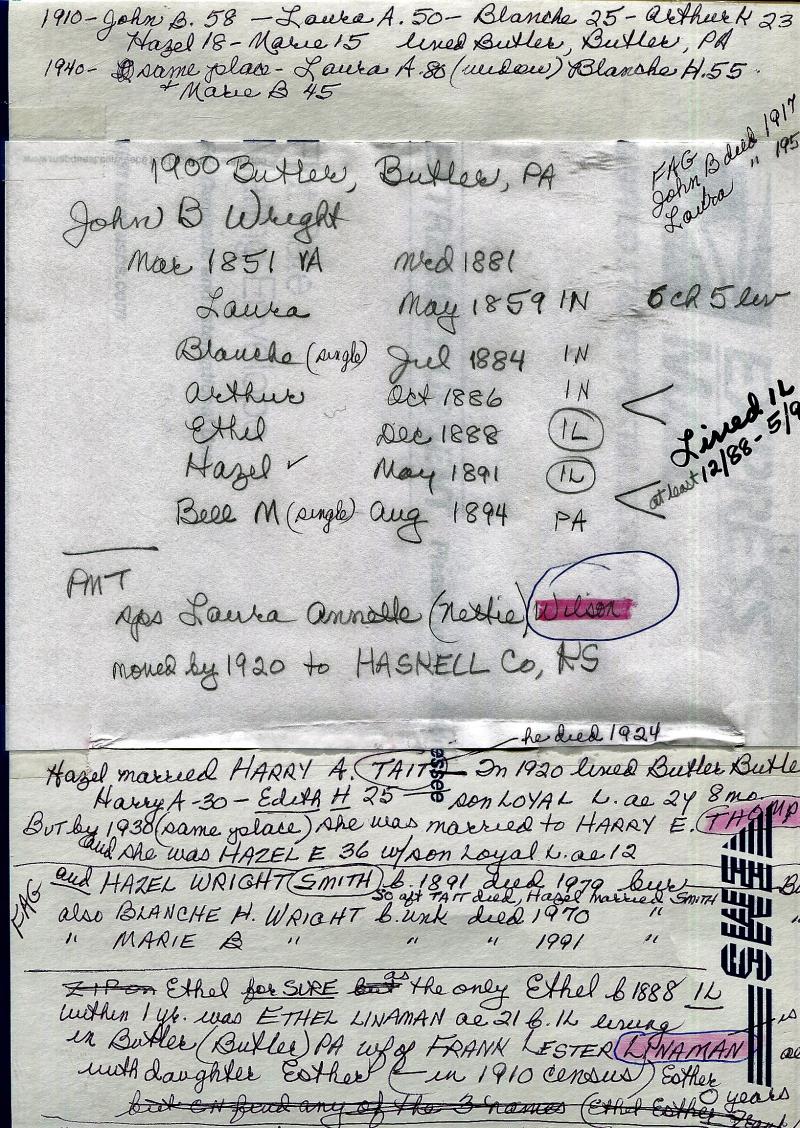 1910- John B. 58 - Laura A. 50 - Blanche 25 - Arthur K 23
Hazel 18 - Marie 15 lived Butler, Butler, PA
1940- same place - Laura A. 80 (widow) Blanche H. 55
+ Marie B 45
FAG
John B died 1917
Laura " 195
1900 Butler, Butler, PA
John B Wright
Mar 1851 VA mrd 1881
Laura May 1859 IN 5 ch 5 liv
Blanche (single) Jul 1884 IN
Arthur Oct 1886 IN
Ethel Dec 1888 IL
Hazel ✓ May 1891 IL
Bell M (single) Aug 1894 PA
Lived IL
at least 12/88 - 5/9
AMT
sps Laura Annette (Nettie) Wilson
moved by 1920 to HASKELL Co, KS
he died 1924
Hazel married HARRY A. TAIT - In 1920 lived Butler Butle
Harry A - 30 - Edith H 25 son LOYAL L. ae 2y 8 mo
BUT by 1930 (same place) she was married to HARRY E. THOMP
and she was HAZEL E 36 w/son Loyal L. ae 12
FAG
and HAZEL WRIGHT SMITH b. 1891 died 1979 bur
So aft TAIT died, Hazel married SMITH
also BLANCHE H. WRIGHT b. unk died 1970 "
" MARIE B " " " 1991 "
Ethel for SURE but as the only Ethel b 1888 IL
within 1 yr. was ETHEL LINAMAN ae 21 b. IL living
in Butler (Butler) PA w/of FRANK LESTER LYNAMAN
with daughter Esther (- in 1910 census) Esther
0 years
but can find any of the 3 names (Ethel Esther Frank)